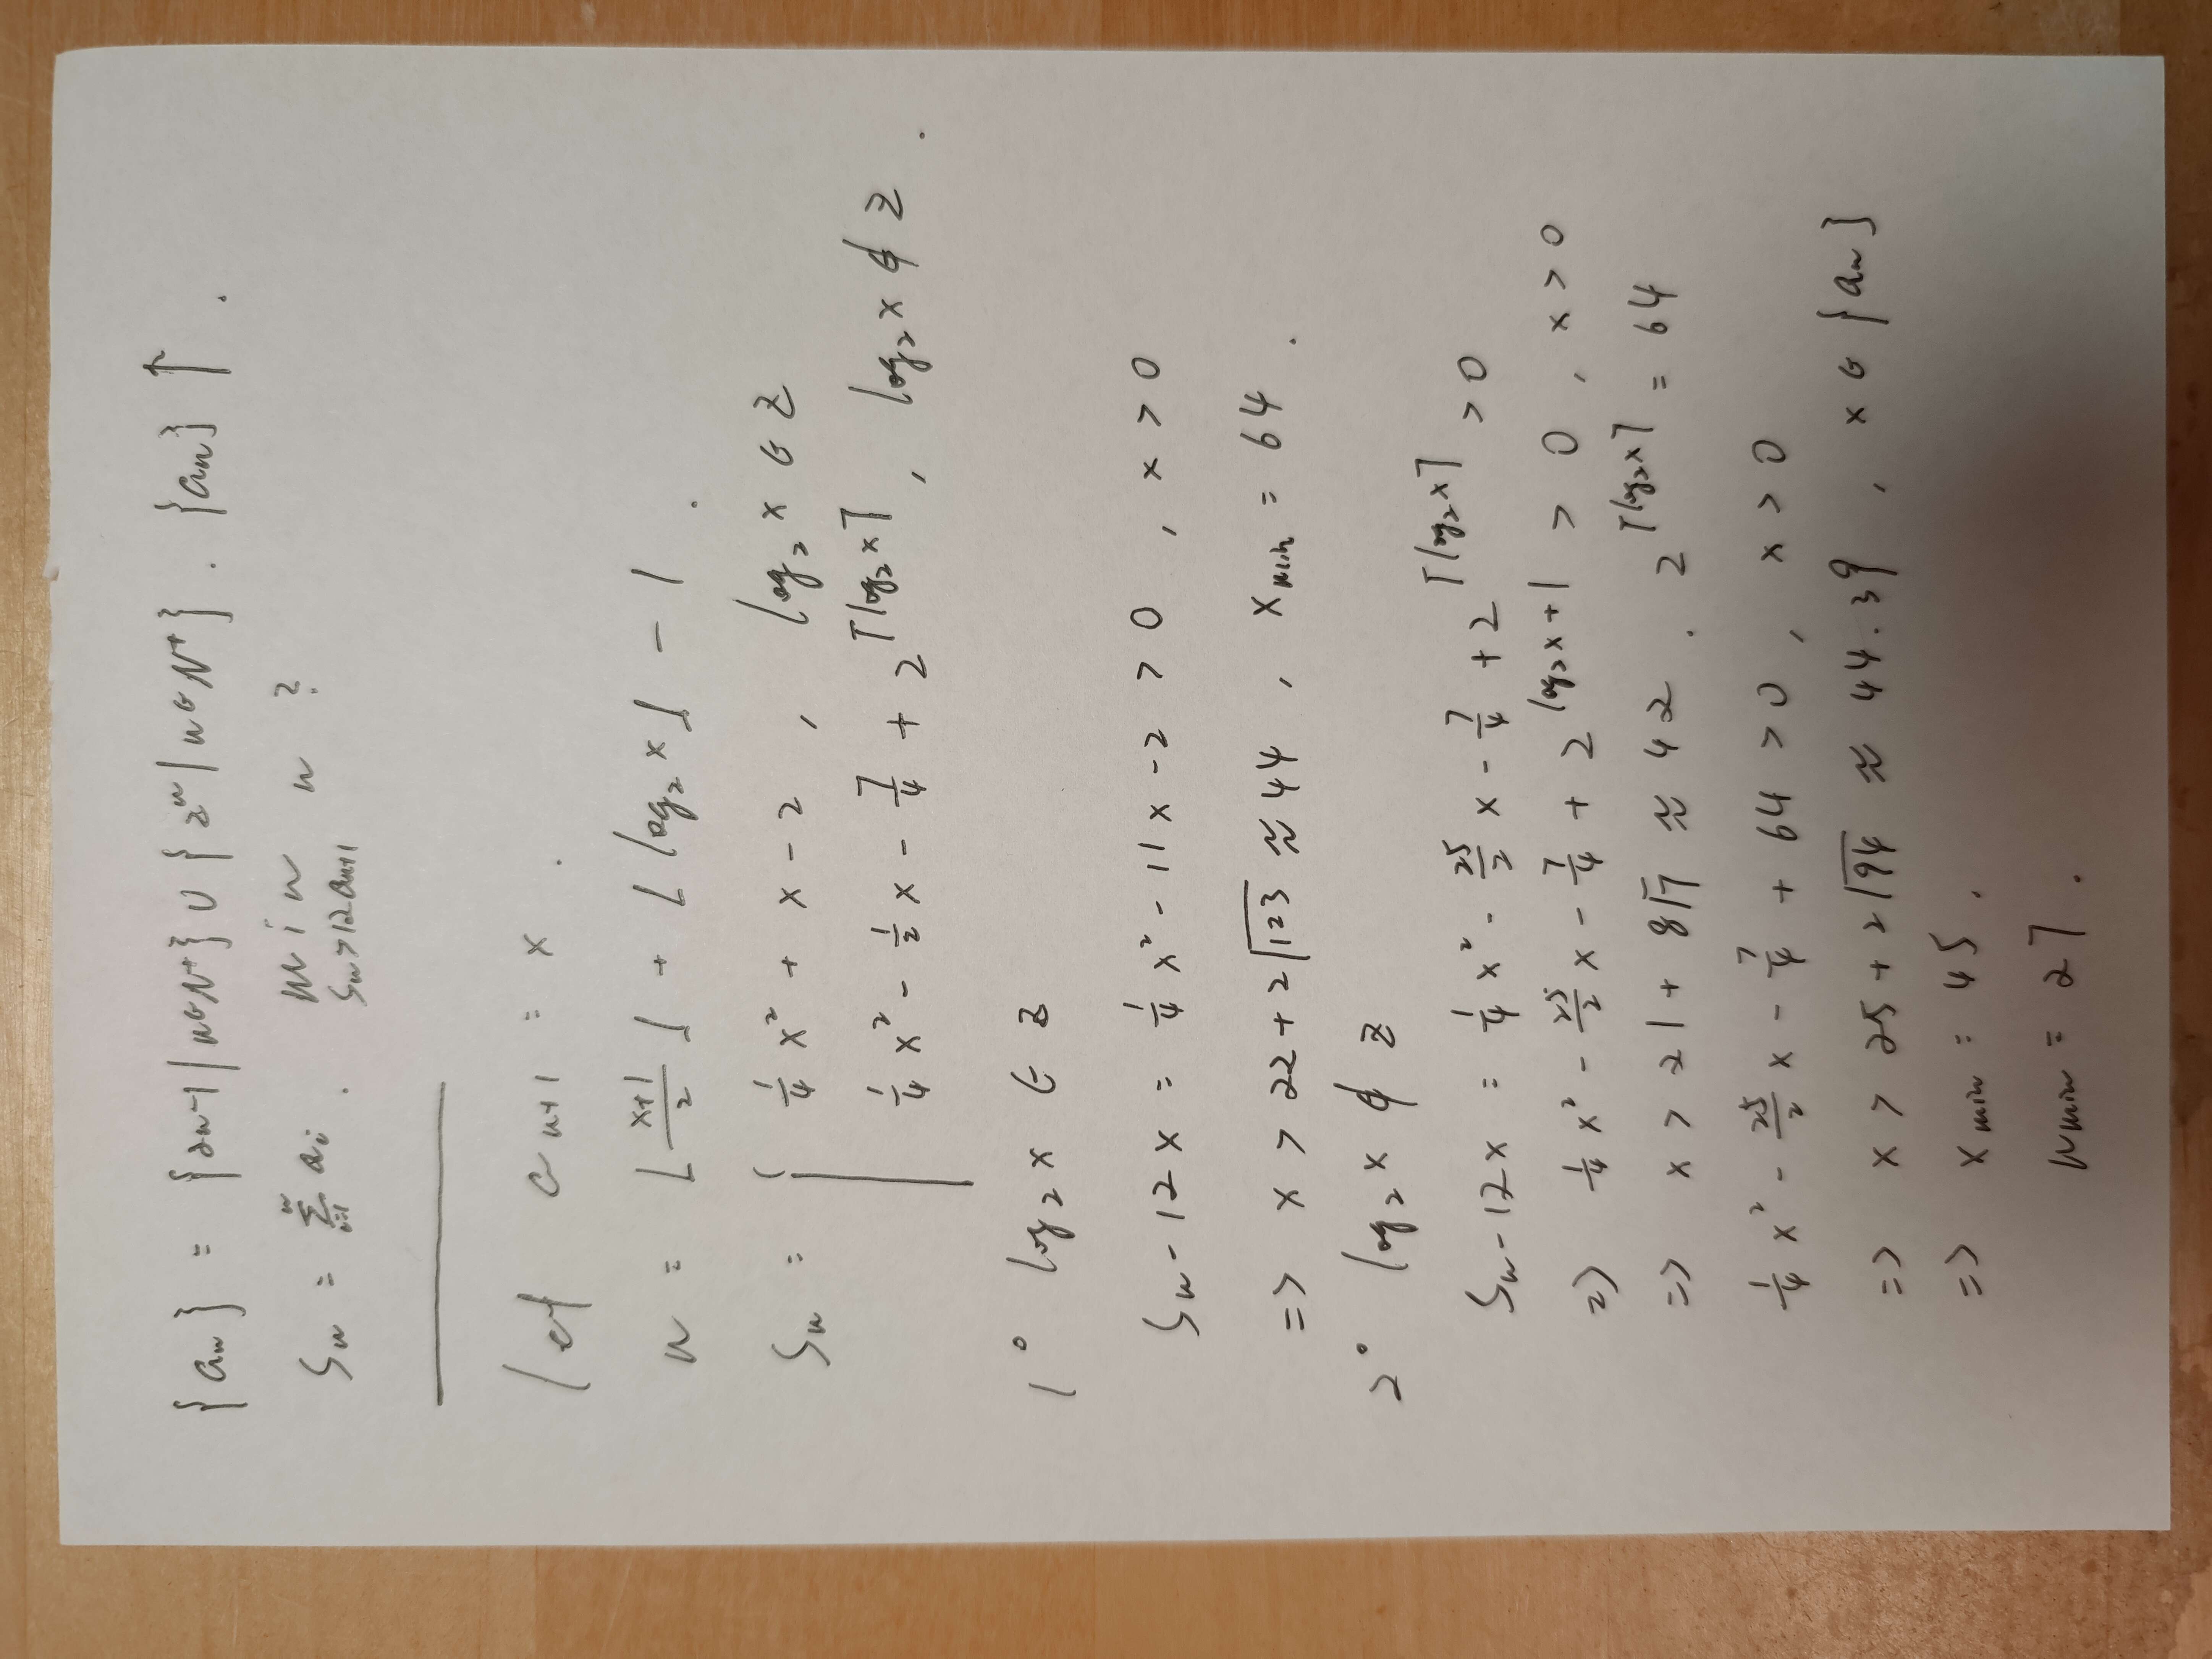 {aₙ} = {2n-1 | n∈N⁺} ∪ {2ⁿ | n∈N⁺} . {aₙ} ↑ .
Sₙ = Σᵢ₌₁ⁿ aᵢ . min_{Sₙ>12aₙ₊₁} n ?
let aₙ₊₁ = x .
n = ⌊(x+1)/2⌋ + ⌊log₂x⌋ - 1 .
Sₙ = { 1/4 x² + x - 2 , log₂x ∈ Z
1/4 x² - 1/2 x - 7/4 + 2^⌈log₂x⌉ , log₂x ∉ Z .
1° log₂x ∈ Z
Sₙ - 12x = 1/4 x² - 11x - 2 > 0 , x > 0
=> x > 22 + 2√123 ≈ 44 , x_min = 64 .
2° log₂x ∉ Z
Sₙ - 12x = 1/4 x² - 25/2 x - 7/4 + 2^⌈log₂x⌉ > 0
=> 1/4 x² - 25/2 x - 7/4 + 2^(log₂x+1) > 0 , x > 0
=> x > 21 + 8√7 ≈ 42 . 2^⌈log₂x⌉ = 64
1/4 x² - 25/2 x - 7/4 + 64 > 0 , x > 0
=> x > 25 + 2√94 ≈ 44.39 , x ∈ {aₙ}
=> x_min = 45 .
n_min = 27 .